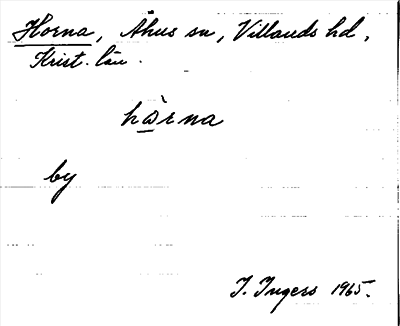 Horna, Åhus sn, Villands hd,
Krist. län.
hɷ̀rna
by
I. Ingers 1965.